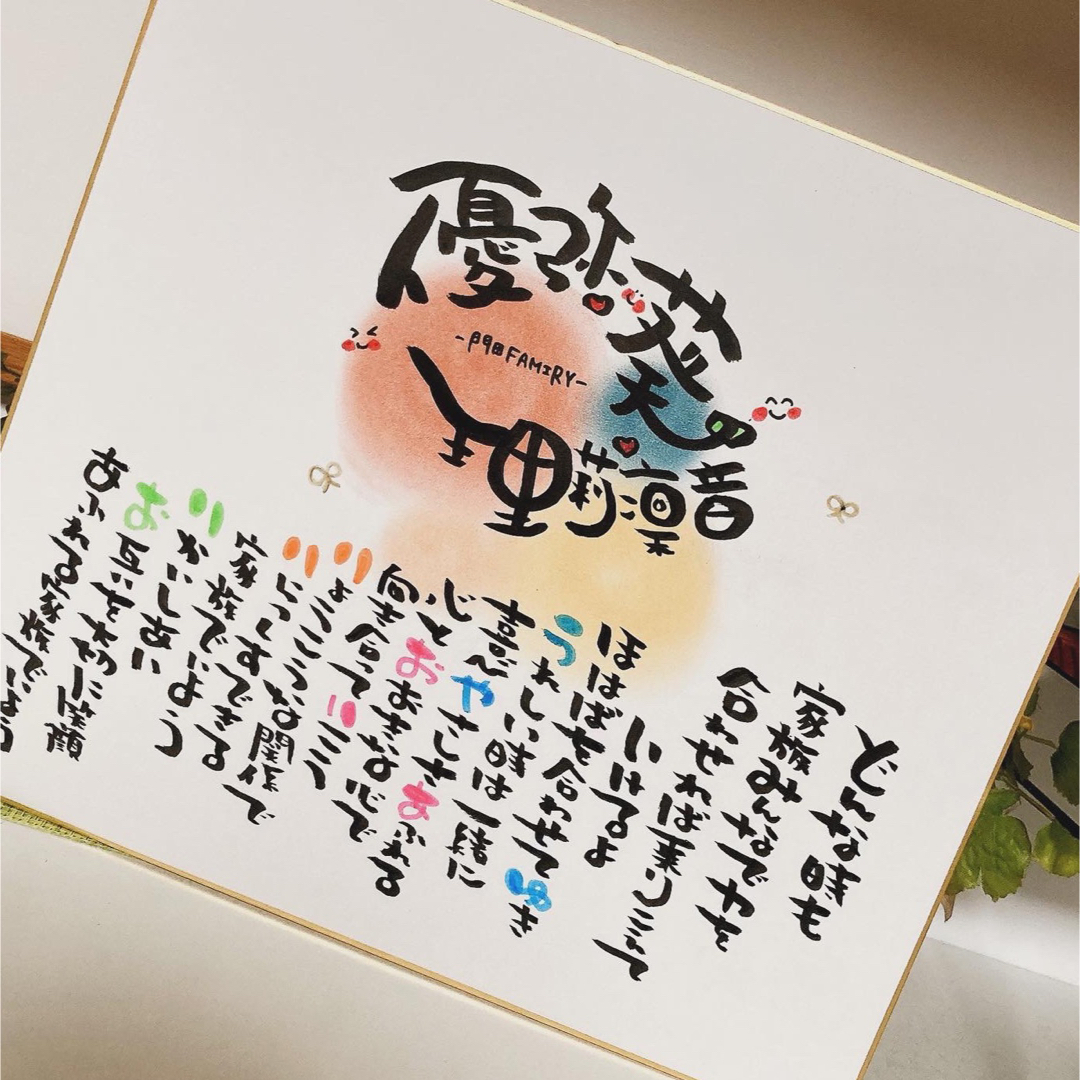 優弥 葵 天
-門田FAMIRY-
理 莉 凛音
どんな時も
家族みんなで力を
合わせれば乗りこえて
いけるよ
ほはばを合わせてゆき
うれしい時は一緒に
喜び やさしさあふれる
心と おおきな心で
向き合って いこう
りょうこうな関係で
家族でいよう
りかいしあい
お互いを大切に笑顔
あふれる家族でいよう